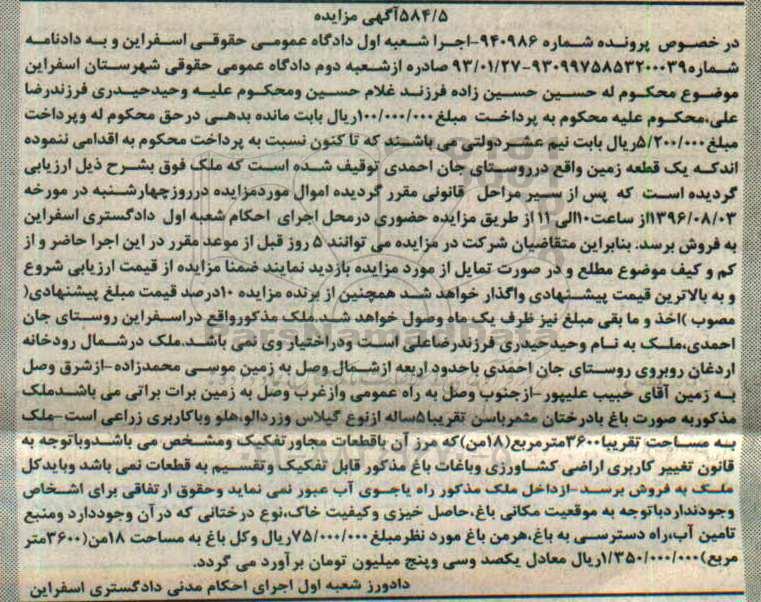 ۵۸۴/۵آگهی مزایده
در خصوص پرونده شماره ۹۴۰۹۸۶-اجرا شعبه اول دادگاه عمومی حقوقی اسفراین و به دادنامه
شماره۹۳۰۹۹۷۵۸۵۳۲۰۰۰۳۹-۹۳/۰۱/۲۷ صادره ازشعبه دوم دادگاه عمومی حقوقی شهرستان اسفراین
موضوع محکوم له حسین حسین زاده فرزند غلام حسین ومحکوم علیه وحیدحیدری فرزندرضا
علی،محکوم علیه محکوم به پرداخت مبلغ۱۰۰/۰۰۰/۰۰۰ریال بابت مانده بدهی درحق محکوم له وپرداخت
مبلغ۵/۲۰۰/۰۰۰ریال بابت نیم عشردولتی می باشند که تا کنون نسبت به پرداخت محکوم به اقدامی ننموده
اندکه یک قطعه زمین واقع درروستای جان احمدی توقیف شده است که ملک فوق بشرح ذیل ارزیابی
گردیده است که پس از سیر مراحل قانونی مقرر گردیده اموال موردمزایده درروزچهارشنبه در مورخه
۱۳۹۶/۰۸/۰۳از ساعت۱۰الی ۱۱ از طریق مزایده حضوری درمحل اجرای احکام شعبه اول دادگستری اسفراین
به فروش برسد. بنابراین متقاضیان شرکت در مزایده می توانند ۵ روز قبل از موعد مقرر در این اجرا حاضر و از
کم و کیف موضوع مطلع و در صورت تمایل از مورد مزایده بازدید نمایند ضمنا مزایده از قیمت ارزیابی شروع
و به بالاترین قیمت پیشنهادی واگذار خواهد شد همچنین از برنده مزایده ۱۰درصد قیمت مبلغ پیشنهادی(
مصوب )اخذ و ما بقی مبلغ نیز ظرف یک ماه وصول خواهد شد.ملک مذکورواقع دراسفراین روستای جان
احمدی،ملک به نام وحیدحیدری فرزندرضاعلی است ودراختیار وی نمی باشد.ملک درشمال رودخانه
اردغان روبروی روستای جان احمدی باحدود اربعه ازشمال وصل به زمین موسی محمدزاده-ازشرق وصل
به زمین آقای حبیب علیپور-ازجنوب وصل به راه عمومی وازغرب وصل به زمین برات براتی می باشدملک
مذکوربه صورت باغ بادرختان مثمرباسن تقریبا۵ساله ازنوع گیلاس وزردالو،هلو وباکاربری زراعی است-ملک
به مساحت تقریبا۳۶۰۰مترمربع(۱۸من)که مرز آن باقطعات مجاورتفکیک ومشخص می باشدوباتوجه به
قانون تغییر کاربری اراضی کشاورزی وباغات باغ مذکور قابل تفکیک وتقسیم به قطعات نمی باشد وبایدکل
ملک به فروش برسد-ازداخل ملک مذکور راه یاجوی آب عبور نمی نماید وحقوق ارتفاقی برای اشخاص
وجودنداردباتوجه به موقعیت مکانی باغ،حاصل خیزی وکیفیت خاک،نوع درختانی که درآن وجوددارد ومنبع
تامین آب،راه دسترسی به باغ،هرمن باغ مورد نظرمبلغ۷۵/۰۰۰/۰۰۰ریال وکل باغ به مساحت ۱۸من(۳۶۰۰متر
مربع)۱/۳۵۰/۰۰۰/۰۰۰ریال معادل یکصد وسی وپنج میلیون تومان برآورد می گردد.
دادورز شعبه اول اجرای احکام مدنی دادگستری اسفراین